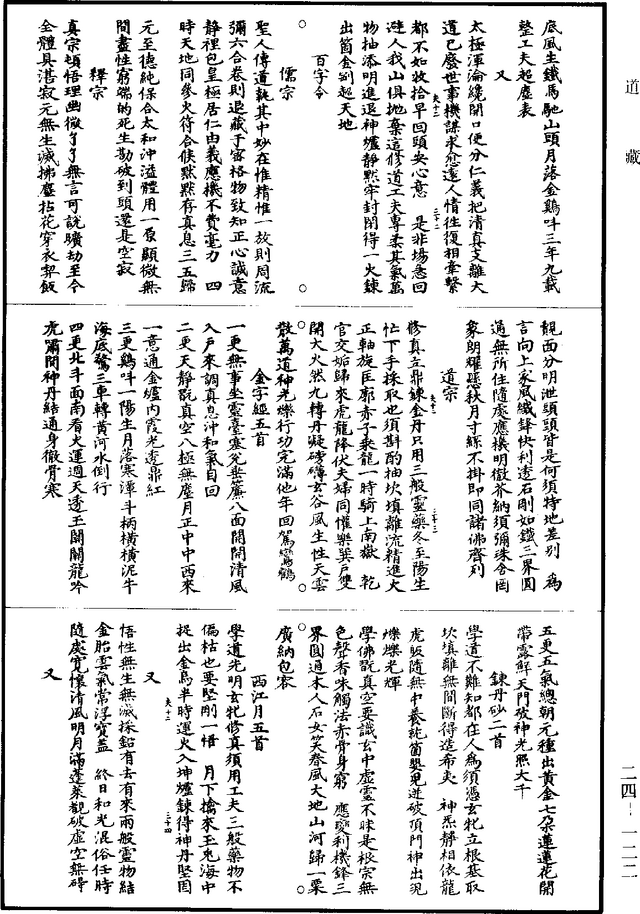 道藏
底風生鐵馬馳山頭月落金鷄叫三年九載
整工夫超塵表
又
太極渾淪纔開口便分仁義把清真支離大
道已廢世事機謀求愈遠人情往復相牽繫
都不如收拾早回頭安心意 是非場急回
避人我山俱拋棄這修道工夫專柔其氣萬
物抽添明進退神爐靜默牢封閉得一火鍊
出箇金剛超天地
百字令
儒宗
聖人傳道執其中妙在惟精惟一放則周流
彌六合卷則退藏于密格物致知正心誠意
靜裡包皇極居仁由義應機不費毫力 四
時天地同參火符合候默默存真息三五歸
元至德純保合太和沖溢體用一原顯微無
間盡性窮端的死生勘破到頭還是空寂
釋宗
真宗頓悟理幽微了了無言可說曠劫至今
全體具湛寂元無生滅拂塵拈花穿衣喫飯
覿面分明泄頭頭皆是何須特地差別 為
言向上家風纖鋒快利透石剛如鐵三界圓
通無所住隨處應機明徹芥納須彌珠含罔
象朗耀懸秋月寸絲不掛即同諸佛齊列
道宗
修真立鼎鍊金丹只用三般靈藥冬至陽生
忙下手採取也須斟酌抽坎填離流精進火
正軸旋匡廓赤子乘龍一時騎上南嶽 乾
宮交姤歸來虎龍降伏夫婦同懽樂巽戶雙
開大火然九轉丹凝磅礡玄谷風生性天雲
散萬道神光爍行功完滿他年回駕鸞鶴
金字經五首
一更無事坐靈臺塞兌垂簾八面開開清風
入戶來調真息沖和氣自回
二更天靜翫真空八極無塵月正中中西來
一意通金爐內霞光透鼎紅
三更鷄叫一陽生月落寒潭斗柄橫橫泥牛
海底驚三車轉黃河水倒行
四更北斗面南看火運週天透玉關關龍吟
虎嘯間神丹結通身徹骨寒
五更五氣總朝元種出黃金七朵蓮蓮花開
帶露鮮天門破神光照大千
鍊丹砂二首
學道不難知都在人為須憑玄牝立根基取
坎填離無間斷得造希夷 神炁靜相依龍
虎販隨無中養就箇嬰兒迸破頂門神出現
爍爍光輝
學佛翫真空要識玄中虛靈不昧是根宗無
色聲香味觸法赤骨身窮 應變利機鋒三
界圓通木人石女笑春風大地山河歸一粟
廣納包容
西江月五首
學道光明玄牝修真須用工夫三般藥物不
偏枯也要堅剛一悟 月下擒來玉兔海中
捉出金烏半時運火入坤爐鍊得神丹堅固
又
悟性無生無滅採鉛有去有來兩般靈物結
金胎雲氣常浮寶蓋 終日和光混俗任時
隨處寬懷清風明月滿蓬萊觀破虛空無碍
又
二四－一二二